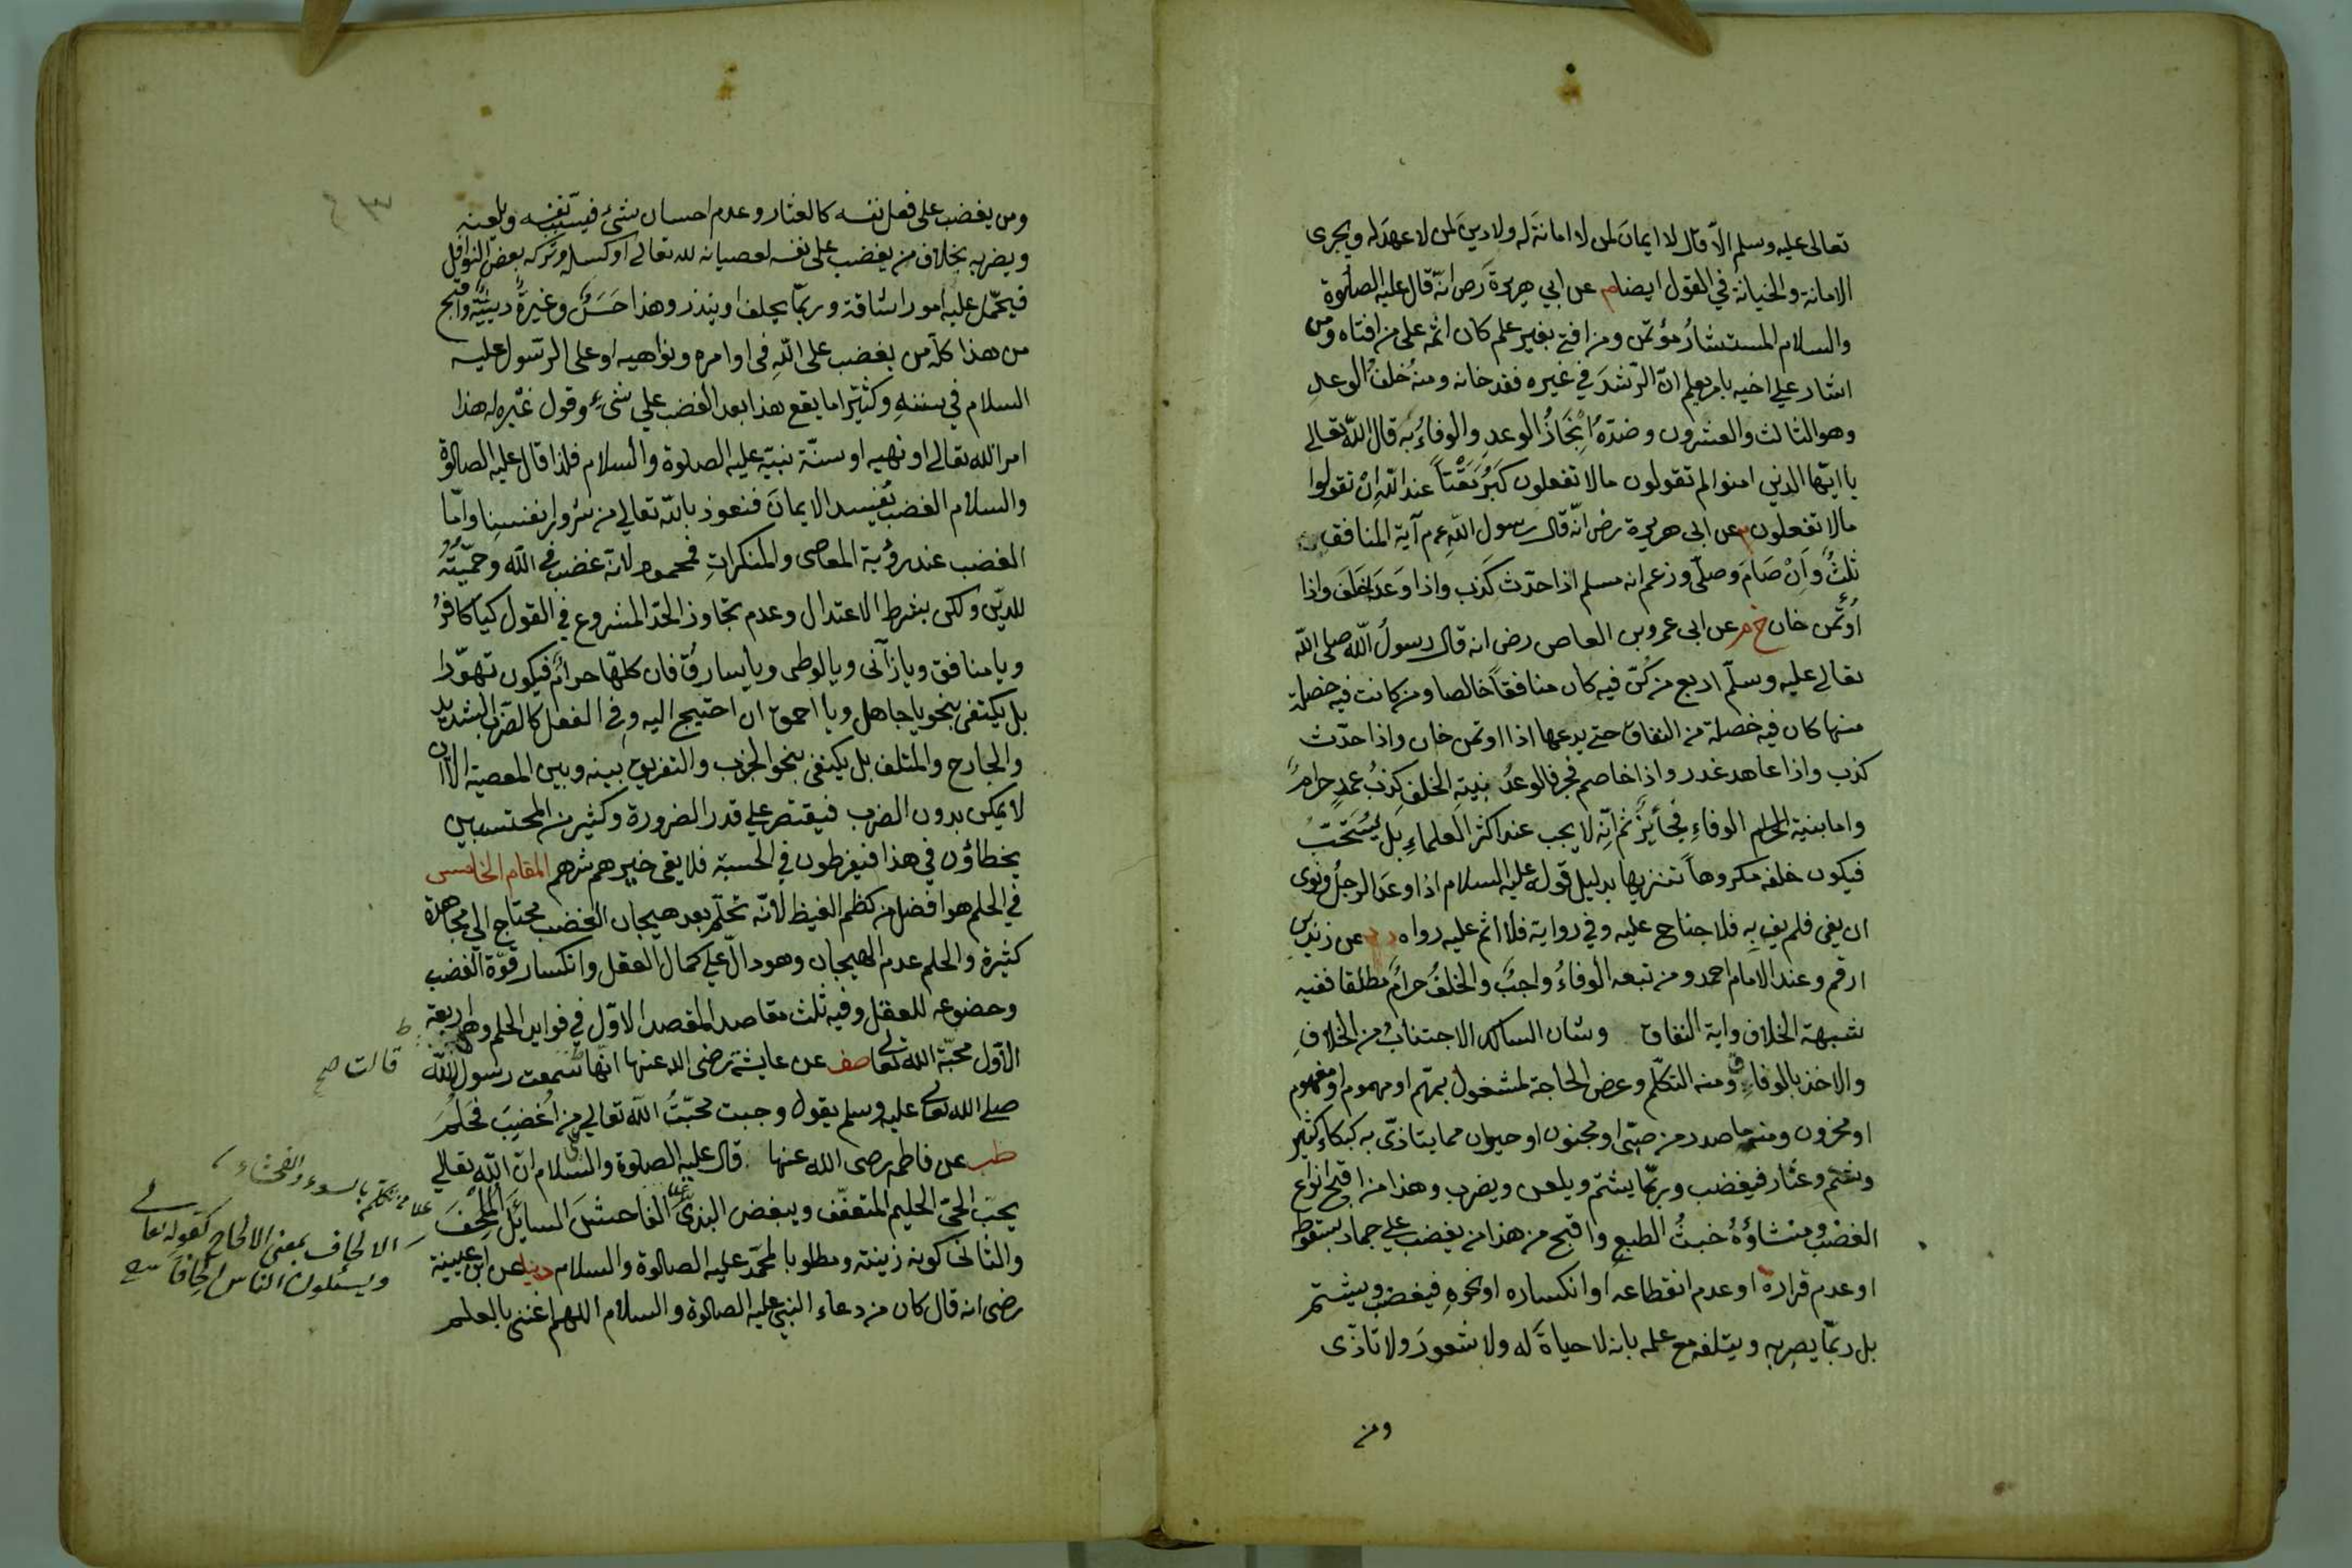 تعالى عليه وسلم الا قال لا ايمان لمن لا امانة له ولا دين لمن لا عهد له ويجرى
الامانة والخيانة في القول ايضا م عن ابي هريرة رض انه قال عليه الصلوة
والسلام المستشار مؤتمن ومن افتى بغير علم كان اثمه على من افتاه ومن
اشار علي اخيه بامر يعلم ان الرشد في غيره فقد خانه ومنه خلف الوعد
وهو الثالث والعشرون وضده انجاز الوعد والوفاء به قال الله تعالى
يا ايها الذين امنوا لم تقولون ما لا تفعلون كبر مقتا عند الله ان تقولوا
ما لا تفعلون م عن ابى هريرة رض انه قال رسول الله عم آية المنافق
ثلث وان صام وصلى وزعم انه مسلم اذا حدث كذب واذا وعد اخلف واذا
اؤتمن خان خ م عن ابى عمرو بن العاص رضى انه قال رسول الله صلى الله
تعالى عليه وسلم اربع من كن فيه كان منافقا خالصا ومن كانت فيه خصلة
منها كان فيه خصلة من النفاق حتى يدعها اذا اوتمن خان واذا حدث
كذب واذا عاهد غدر واذا خاصم فجر فالوعد بنية الخلف كذب عمد حرام
واما بنية الوفاء فجائز ثم انه لا يجب عند اكثر العلماء بل يستحب
فيكون خلفه مكروها تنزيها بدليل قوله عليه السلام اذا وعد الرجل ونوى
ان يفى فلم يف به فلا جناح عليه وفي رواية فلا اثم عليه رواه عن زيد بن
ارقم وعند الامام احمد ومن تبعه الوفاء واجب والخلف حرام مطلقا ففيه
شبهة الخلاف واية النفاق وشان السالك الاجتناب من الخلاف
والاخذ بالوفاء ومنه التكلم وعرض الحاجة لمشغول بمهم او مهموم او مغموم
او محزون ومنه ما صدر من صبى او مجنون او حيوان مما يتاذى به كبكاء كثير
وعثار فيغضب وربما يشتم ويلعن ويضرب وهذا من اقبح انواع
الغضب ومنشاؤه خبث الطبع واقبح من هذا من يغضب علي جماد بسقوطه
او عدم قراره او عدم انقطاعه او انكساره او نحوه فيغضب ويشتم
بل ربما يضربه ويتلفه مع علمه بانه لا حياة له ولا شعور ولا تاذى
ومن
ومن يغضب على فعل نفسه كالعثار وعدم احسان شئ فيسب نفسه ويلعنه
ويضربه بخلاف من يغضب على نفسه لعصيانه لله تعالى او كسله وتركه بعض النوافل
فيحمل عليه امورا شاقة وربما يحلف او ينذر وهذا حسن وغيرة دينية واقبح
من هذا كله من يغضب على الله فى اوامره ونواهيه او على الرسول عليه
السلام في سننه وكثيرا ما يقع هذا بعد الغضب علي شئ وقول غيره له هذا
امر الله تعالى او نهيه او سنة نبيه عليه الصلوة والسلام فلذا قال عليه الصلوة
والسلام الغضب يفسد الايمان فنعوذ بالله تعالى من شرور انفسنا واما
الغضب عند رؤية المعاصى والمنكرات فمحمود لانه غضب فى الله وحمية
للدين ولكن بشرط الاعتدال وعدم تجاوز الحد المشروع في القول كيا كافر
ويا منافق ويا زانى ويا لوطى ويا سارق فان كلها حرام فيكون تهورا
بل يكتفى بنحو يا جاهل ويا احمق ان احتيج اليه وفى الفعل كالضرب الشديد
والجارح والمتلف بل يكتفى بنحو الجذب والتفريق بينه وبين المعصية الا ان
لا يمكن بدون الضرب فيقتصر علي قدر الضرورة وكثير من المحتسبين
يخطاؤن في هذا فيفرطون في الحسبة فلا يفى خيرهم شرهم المقام الخامس
في الحلم هو افضل من كظم الغيظ لانه تحلم بعد هيجان الغضب محتاج الي مجاهدة
كثيرة والحلم عدم الهيجان وهو دال علي كمال العقل وانكسار قوة الغضب
وخضوعه للعقل وفيه ثلث مقاصد المقصد الاول في فوايد الحلم وهى اربعة
الاول محبة الله تعالى صف عن عايشة رضى الله عنها انها سمعت رسول الله
قالت صح
صلى الله تعالى عليه وسلم يقول وجبت محبت الله تعالي من اغضب فحلم
طب عن فاطمه رضى الله عنها قال عليه الصلوة والسلام ان الله تعالي
يحب الحيى الحليم المتعفف ويبغض البذى الفاحش السائل الملحف
والثانى كونه زينة ومطلوبا لمحمد عليه الصلوة والسلام دنيا عن ابن عيينة
رضى انه قال كان من دعاء النبى عليه الصلوة والسلام اللهم اغننى بالعلم
من تكلم بالسوء والفحشاء
الالحاف بمعنى الالحاح كقوله تعالى
ويسئلون الناس الحافا